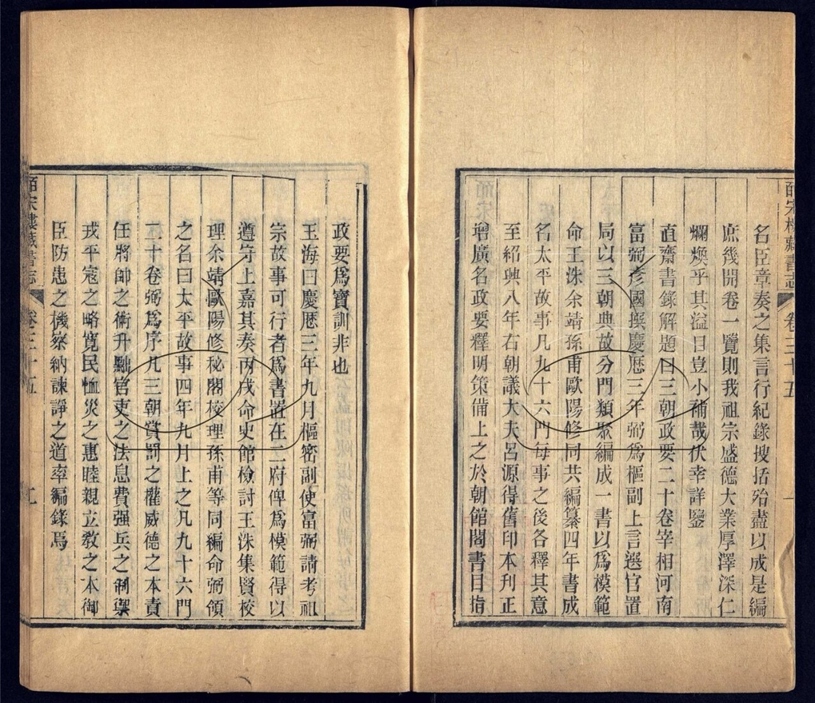 皕宋樓藏書志 卷三十五
名臣章奏之集言行紀錄搜括殆盡以成是編
庶幾開卷一覽則我祖宗盛德大業厚澤深仁
爛煥乎其溢目豈小補哉伏幸詳鑒
直齋書錄解題曰三朝政要二十卷宰相河南
富弼彥國撰慶厯三年弼爲樞副上言選官置
局以三朝典故分門類聚編成一書以爲模範
命王洙余靖孫甫歐陽修同共編纂四年書成
名太平故事凡九十六門每事之後各釋其意
至紹興八年右朝議大夫呂源得舊印本刋正
增廣名政要釋明策備上之於朝館閣書目指
政要爲寶訓非也
玉海曰慶厯三年九月樞密副使富弼請考祖
宗故事可行者爲書置在二府俾爲模範得以
遵守上嘉其奏丙戌命史館檢討王洙集賢校
理余靖歐陽修秘閣校理孫甫等同編命弼領
之名曰太平故事四年九月上之凡九十六門
二十卷弼爲序凡三朝賞罰之權威德之本責
任將帥之術升黜官吏之法息費强兵之制禦
戎平寇之略寛民恤災之惠睦親立敎之本御
臣防患之機察納諫諍之道率編錄焉
皕宋樓藏書志 卷三十五